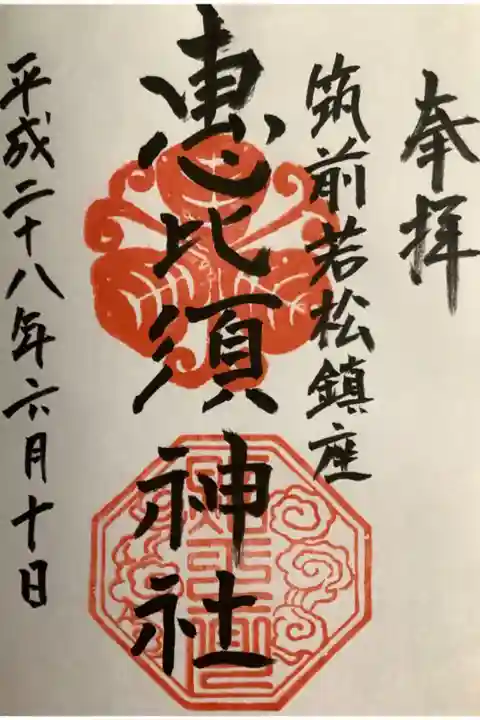 奉拝
筑前若松鎮座
恵比須神社
平成二十八年六月十日